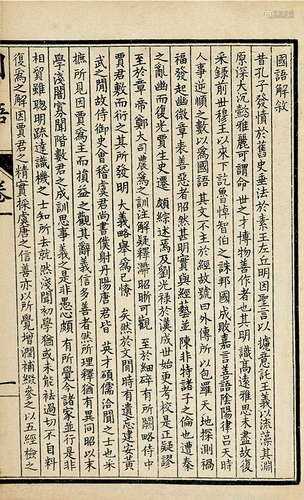 國語解敘
昔孔子發憤於舊史垂法於素王左丘明因聖言以攄意託王義以流藻其淵
原深大沈懿雅麗可謂命世之才博物善作者也其明識高遠雅思未盡故復
采錄前世穆王以來下訖魯悼智伯之誅邦國成敗嘉言善語陰陽律呂天時
人事逆順之數以爲國語其文不主於經故號曰外傳所以包羅天地探測禍
福發起幽微章表善惡者昭然甚明實與經藝並陳非特諸子之倫也遭秦
之亂幽而復光賈生史遷頗綜述焉及劉光祿於漢成世始更考校是正疑謬
至於章帝鄭大司農爲之訓注解疑釋滯昭晰可觀至於細碎有所闕略侍中
賈君敷而衍之其所發明大義略舉爲已憭矣然於文閒時有遺忘建安黃
武之閒故侍御史會稽虞君尚書僕射丹陽唐君皆英才碩儒洽聞之士也采
摭所見因賈爲主而損益之觀其辭義信多善者然所理釋猶有異同昭以末
學淺闇寡聞階數君之成訓思事義之是非愚心頗有所覺今諸家並行是非
相貿雖聰明疏達識機之士知所去就然淺聞初學猶或未能祛過切不自料
復爲之解因賈君之精實採虞唐之信善亦以所覺增潤補綴參之以五經檢之